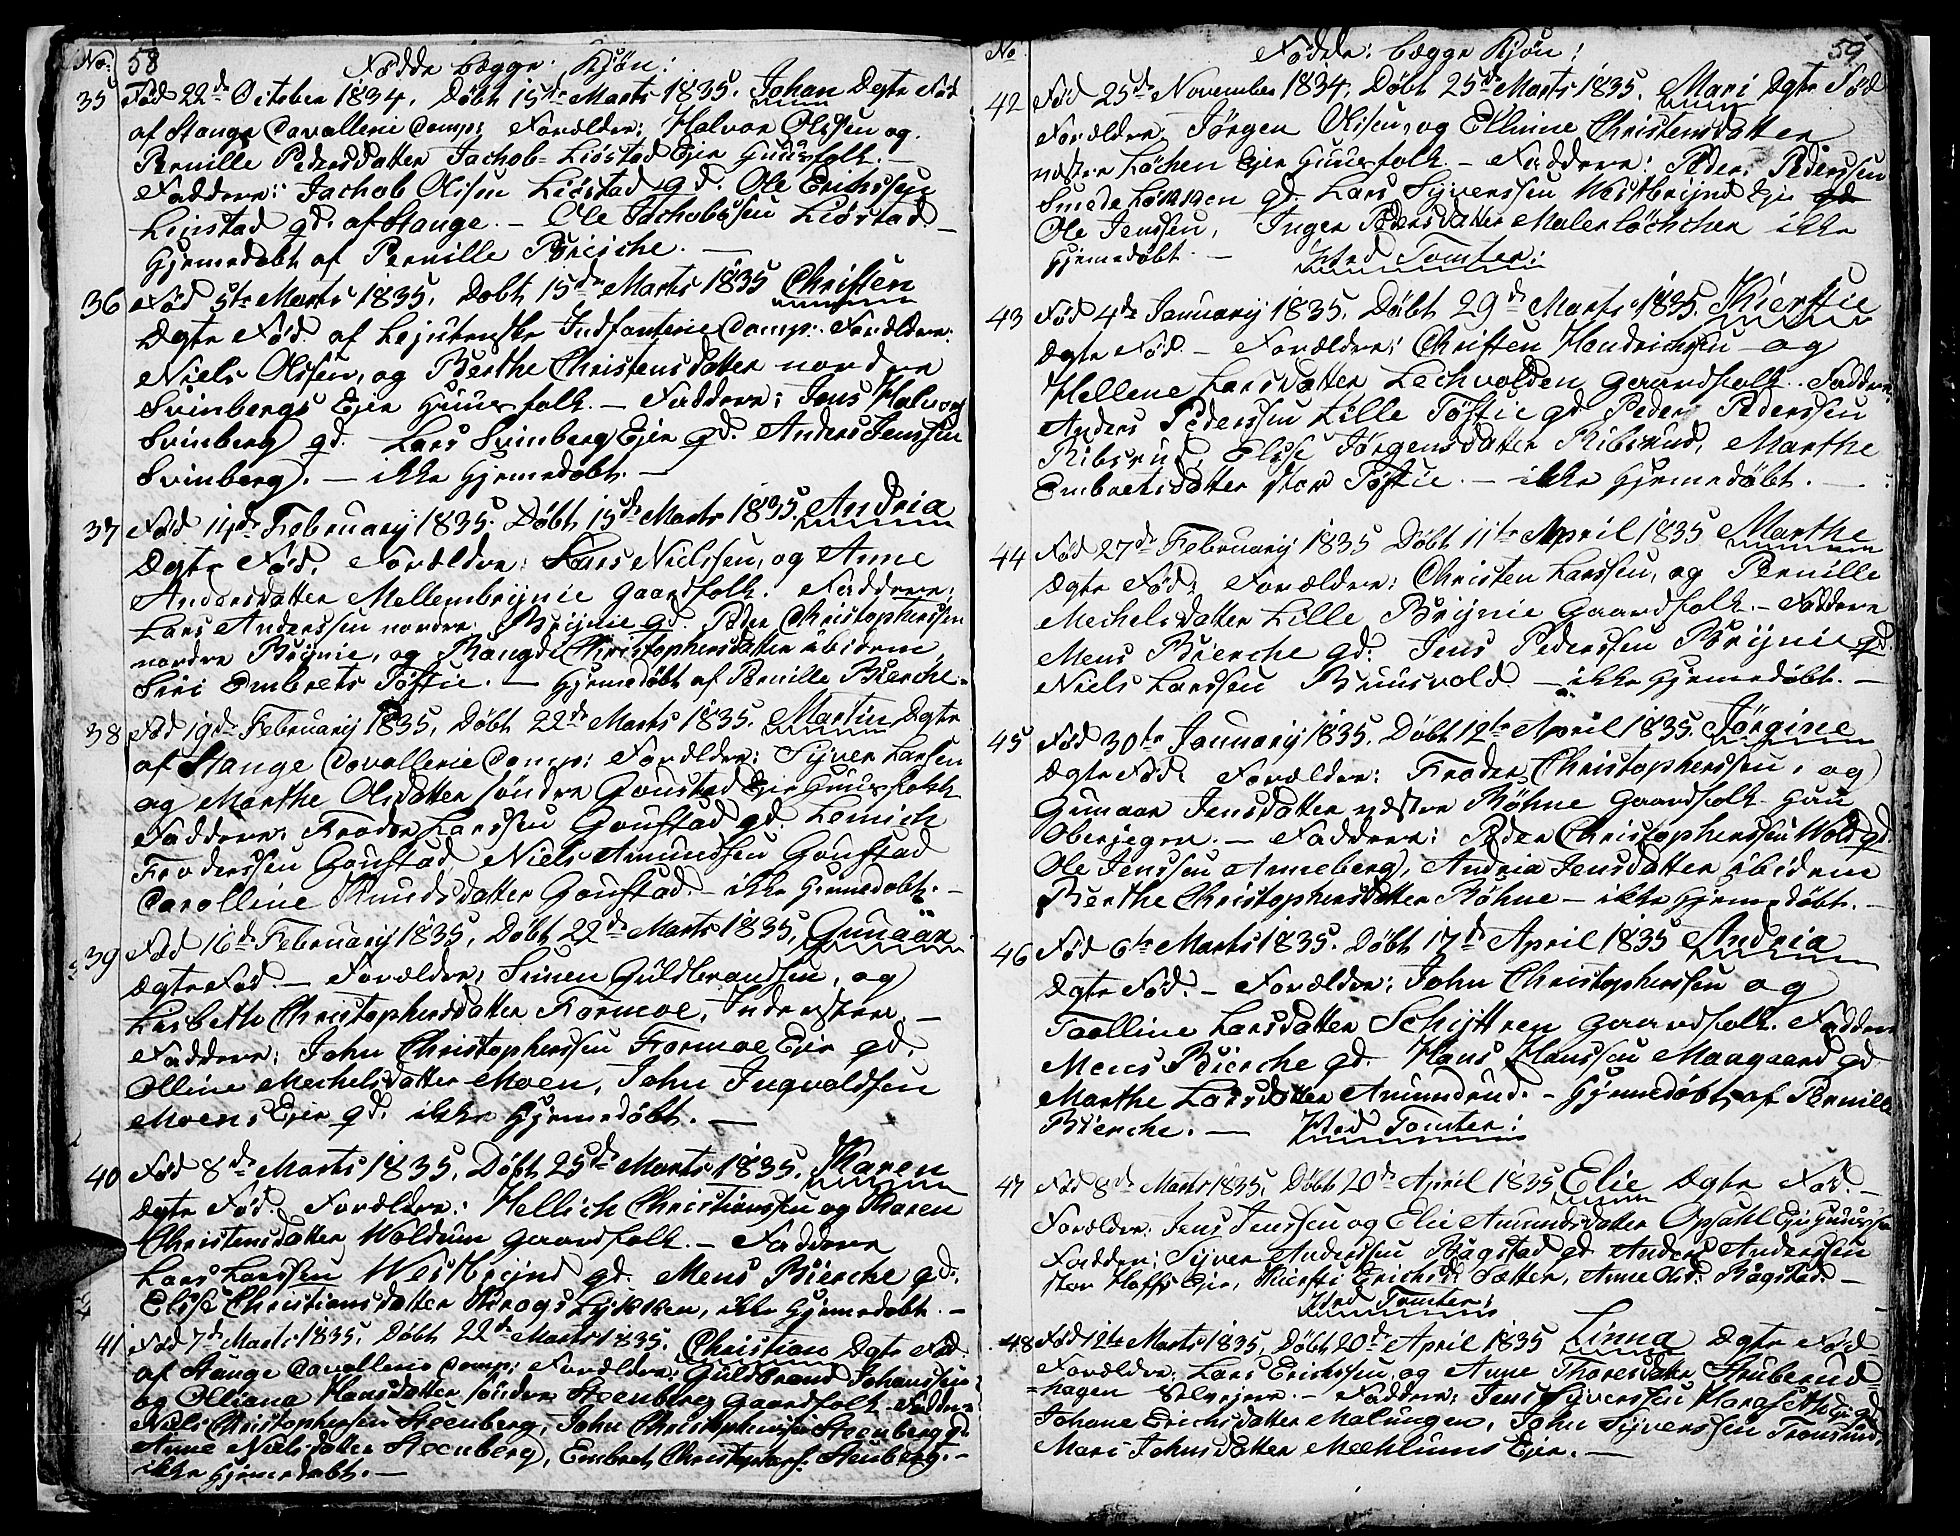 No: 58
Fødde begge: Kjøn:
35 Fød 22de October 1834. Døbt 15de Marts 1835. Johan Dgte Fød
af Stange Cavallerie Comp: Forældre: Halvor Olssen og.
Pernille Pedersdatter Jachob-Liøstad Ejer Huusfolk. —
Faddere: Jachob Olssen Liøstad gd. Ole Erichssen
Linstad gd. af Stange. — Ole Jachobssen Liøstad —
Hjemedøbt af Pernille Bierche. —
36 Fød 5te Marts 1835. Døbt 15de Marts 1835 Christen
Dgte Fød. af Lejutenske Indfanterie Comp: Forældre:
Niels Olssen, og Berthe Christensdatter nordre
Svinbergs Ejer Huusfolk. — Faddere: Jens Halvors
Svinberg gd. Lars Svinberg Ejer gd. Anders Jenssen
Svinberg. — ikke Hjemedøbt. —
37 Fød 14de February 1835. Døbt 15de Marts 1835. Andria
Dgte Fød. Forældre: Lars Nielssen, og Anne
Andersdatter Mellembrynie Gaardfolk. Faddere:
Lars Anderssen nordre Brynie gd. Peder Christopherssen
nordre Brynie, og Rangdi Christophersdatter ibidem,
Siri Embrets Töftie. — Hjemedøbt af Pernille Bierche.
38 Fød 19de February 1835. Døbt 22de Marts 1835. Martin Dgte
af Stange Cavallerie Comp: Forældre: Syver Larssen
og Marthe Olsdatter söndre Goustad Ejer Huusfolk
Faddere: Froder Larssen Goustad gd. Lemich
Froderssen Goustad Niels Amundssen Goustad
Carolline Knudsdatter Goustad. — ikke Hjemedøbt. —
39 Fød 16de February 1835. Døbt 22de Marts 1835. Gunaar
Dgte Fød. — Forældre: Simen Guldbrandssen, og
Lisbeth Christophersdatter Formoe, Inderstere. —
Faddere: John Christopherssen Formoe Ejer gd.
Olline Mechelsdatter Moen, John Ingvoldssen
Moens Ejer gd. ikke Hjemedøbt. —
40 Fød 8de Marts 1835. Døbt 25de Marts 1835. Karen
Dgte Fød. Forældre: Hellich Christianssen og Karen
Christensdatter Woldum Gaardfolk. — Faddere
Lars Larssen Westbrynd gd. Mens Bierche gd.
Elisse Christiansdatter Krogs Lykken, ikke Hjemedøbt. —
41 Fød 7de Marts 1835. Døbt 22de Marts 1835. Christian Dgte Fød
af Stange Cavallerie Comp: Forældre: Guldbrand Johanssen
og Olliana Hansdatter söndre Steenberg Gaardfolk Faddere
Niels Christopherssen Steenberg, John Christopherssen Steenberg gd.
Anne Nielsdatter Steenberg, Embret Christophers. Stenberg. —
ikke Hjemedøbt. —
No
Fødde: begge Kjøn: 59
42 Fød 25de November 1834. Døbt 25de Marts 1835. Mari Dgte Fød
Forældre: Jörgen Olssen, og Ellinne Christensdatter
nestre Löchen Ejer Huusfolk. — Faddere: Peder Pederssen
Smede Løkken gd. Lars Syverssen Westbrynd Ejer gd
Ole Jenssen, Inger Pedersdatter Maler Löchchen ikke
Hjemedøbt. — Ved Tomter:
43 Fød 4de January 1835. Döbt 29de Marts 1835. Kierstie
Dgte Fød. — Forældre: Christen Hendrichssen og
Hellene Larsdatter Lechvolden Gaardfolk. Faddere:
Anders Pederssen Lille Töftie gd Peder Pederssen
Ribsrud, Elise Jörgensdatter Ribsrud, Marthe
Embretsdatter stor Töftie. — ikke Hjemedøbt. —
44 Fød 27de February 1835 Döbt 11te April 1835 Marthe
Dgte Fød. Forældre: Christen Larssen, og Pernille
Mechelsdatter Lille Brynie Gaardfolk. — Faddere
Mens Bierche gd. Jens Pederssen Brynie gd.
Niels Larssen Bruusvold — ikke Hjemedøbt. —
45 Fød 30te January 1835. Döbt 12te April 1835. Jörgine
Dgte Fød. Forældre: Froder Christopherssen, og
Gunaar Jensdatter vestre Böhne Gaardfolk han
Oberjeger. — Faddere: Peder Christopherssen Wold gd
Ole Jenssen Anneberg, Andria Jensdatter ibidem
Berthe Christophersdatter Böhne — ikke Hjemedøbt. —
46 Fød 6te Marts 1835. Døbt 17de April 1835 Andria
Dgte Fød. — Forældre: John Christopherssen og
Toelline Larsdatter Schyttren Gaardfolk. Faddere
Mens Bierche gd. Hans Hanssen Maugaard gd
Marthe Larsdatter Amundrud. — Hjemedøbt af Pernille
Bierche. — Ved Tomter:
47 Fød 8de Marts 1835. Döbt 20de April 1835 Elie Dgte Fød. —
Forældre: Jens Jenssen og Elie Amundsdatter Opsahl Ejer Huusf
Faddere: Syver Anderssen Bagstad gd Anders Anderssen
stor Hoffs Ejer, Kiersti Erichsd: Sætter, Anne Olsd: Bagstad. —
Ved Tomter:
48 Fød 12te Marts 1835. Döbt 20de April 1835 Linna Dgte Fød
Forældre: Lars Erichssen og Anne Thoresdatter Struberud
=hagen Selvejere. — Faddere: Jens Syverssen Haraseth Ejer gd
Johane Erichsdatter Malungen, John Syverssen Tronsrud,
Mari Johnsdatter Mæhlums Ejer. —